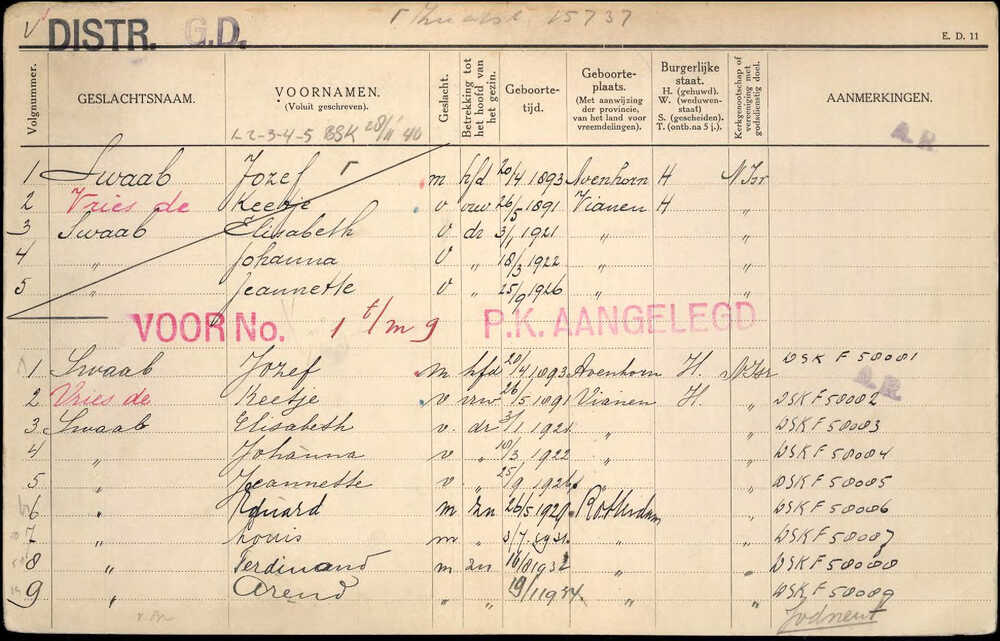 V DISTR. G.D. 15737
E. D. 11
Volgnummer. GESLACHTSNAAM. VOORNAMEN. (Voluit geschreven). Geslacht. Betrekking tot het hoofd van het gezin. Geboorte-tijd. Geboorte-plaats. (Met aanwijzing der provincie, van het land voor vreemdelingen). Burgerlijke staat. H. (gehuwd). W. (weduwen-staat) S. (gescheiden). T. (ontb. na 5 j.). Kerkgenootschap of vereeniging met godsdienstig doel. AANMERKINGEN.
1-2-3-4-5 BSK 28/11 40
A.R.
1 Swaab Jozef m hfd 20/4 1893 Avenhorn H N Isr
2 Vries de Keetje v vrw 26/5 1891 Vianen H "
3 Swaab Elisabeth v dr 3/1 1921 " "
4 " Johanna v " 18/3 1922 " "
5 " Jeannette v " 25/9 1926 " "
VOOR No. 1 t/m 9 P.K. AANGELEGD
1 Swaab Jozef m hfd 20/4 1893 Avenhorn H. N Isr DSK F 50001
A.R.
2 Vries de Keetje v vrw 26/5 1891 Vianen H. " DSK F 50002
3 Swaab Elisabeth v. dr 3/1 1921 " " DSK F 50003
4 " Johanna v " 18/3 1922 " " DSK F 50004
5 " Jeannette v. " 25/9 1926 " " DSK F 50005
6 " Eduard m zn 26/5 1929 Rotterdam " DSK F 50006
7 " Louis m " 3/7 1931 " " DSK F 50007
8 " Ferdinand m zn 16/8 1932 " " DSK F 50008
9 " Arend " " 19/1 1934 " " DSK F 50009